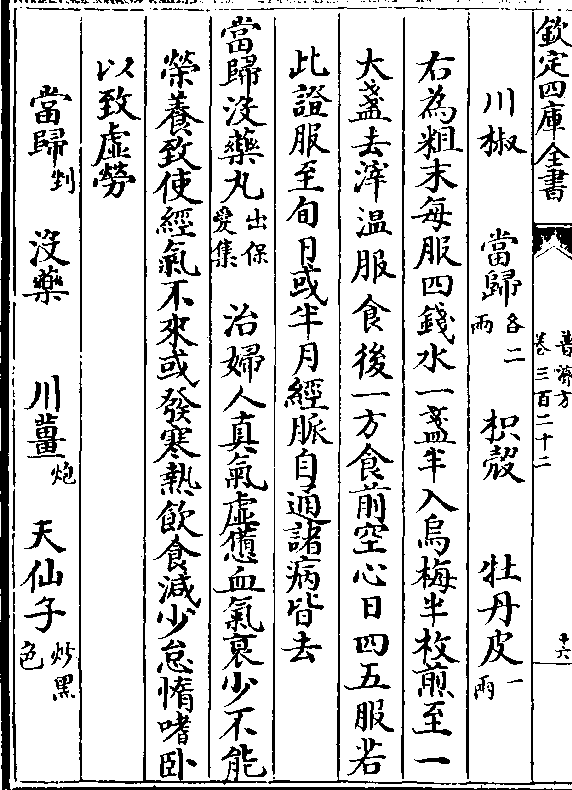 欽定四庫全書
普濟方
卷三百二十二
十六
川椒 當歸各二兩 枳殼 牡丹皮一兩
右為粗末每服四錢水一盞半入烏梅半枚煎至一
大盞去滓温服食後一方食前空心日四五服若
此證服至旬月或半月經脈自通諸病皆去
當歸沒藥丸出保愛集 治婦人真氣虛憊血氣衰少不能
榮養致使經氣不來或發寒熱飲食減少怠惰嗜卧
以致虛勞
當歸剉 沒藥 川薑炮 天仙子炒黑色